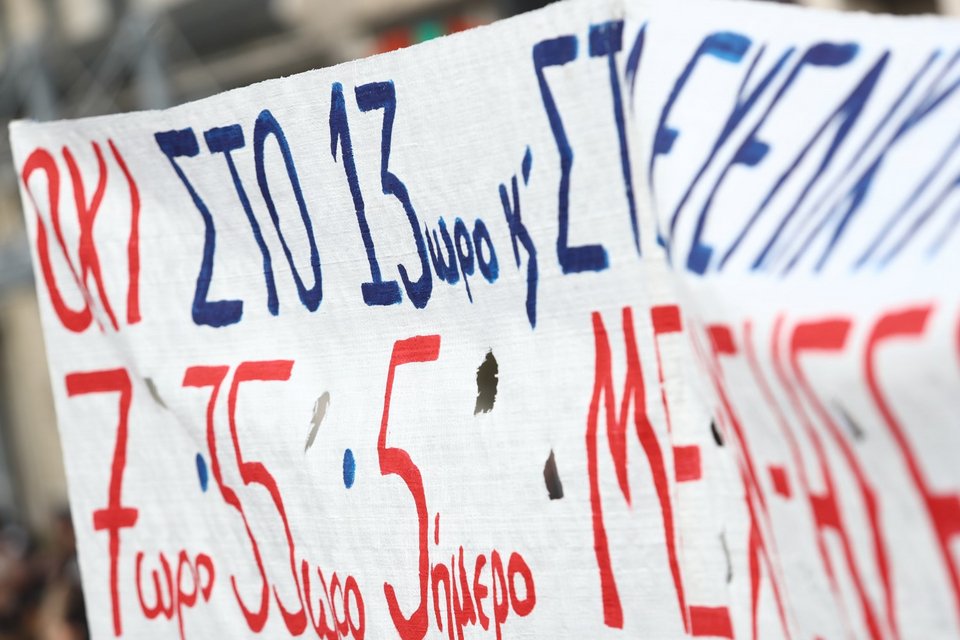 ΟΧΙ ΣΤΟ 13ωρο κ'
7ωρο · 35ωρο · 5ήμερο ΜΕ